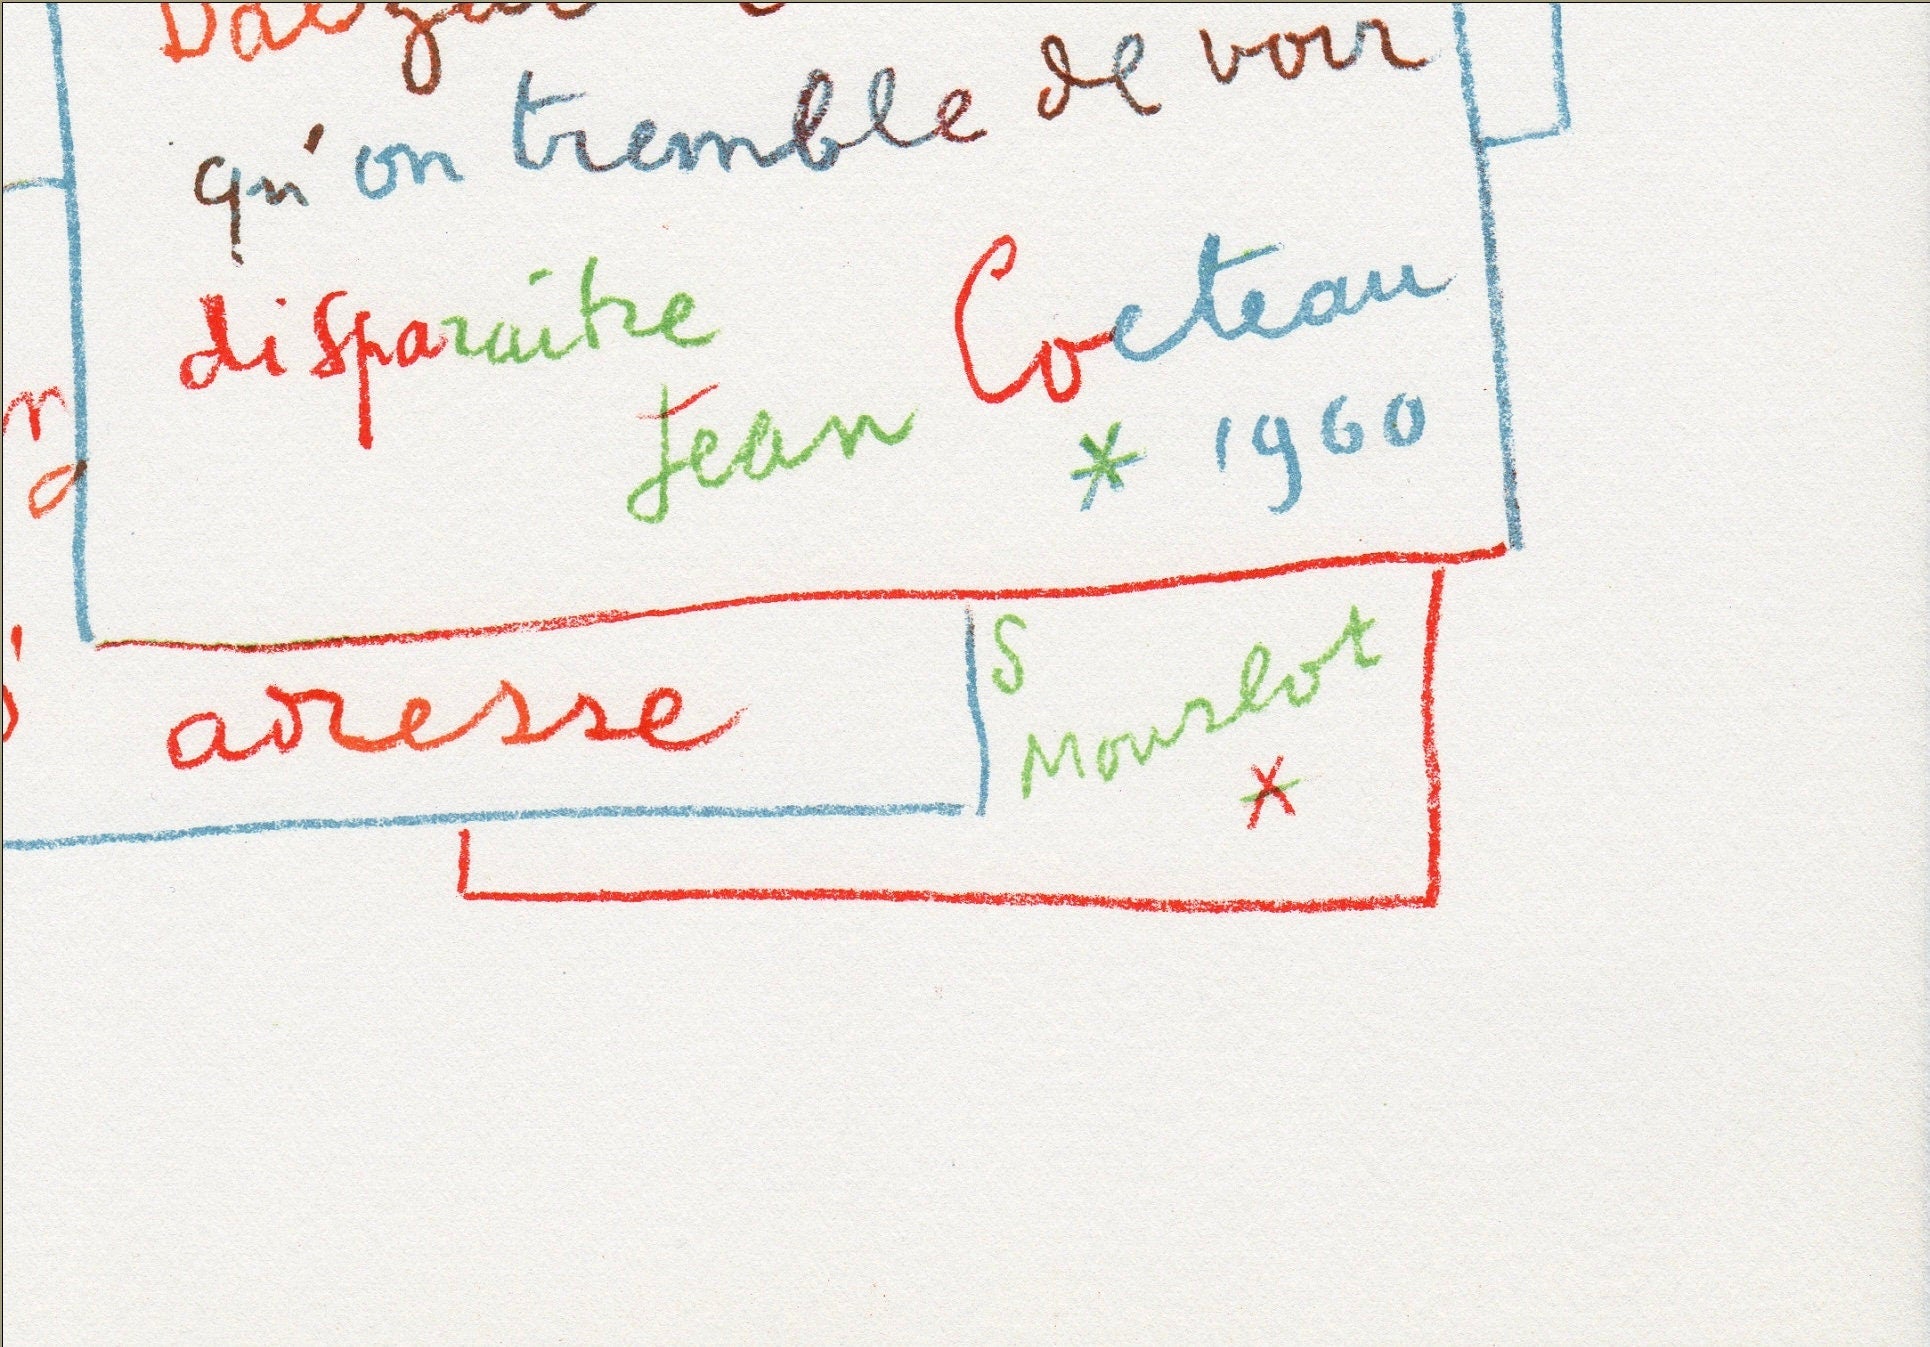 qu'on tremble de voir
disparaitre
Jean Cocteau
* 1960
adresse
S
Mourlot
*